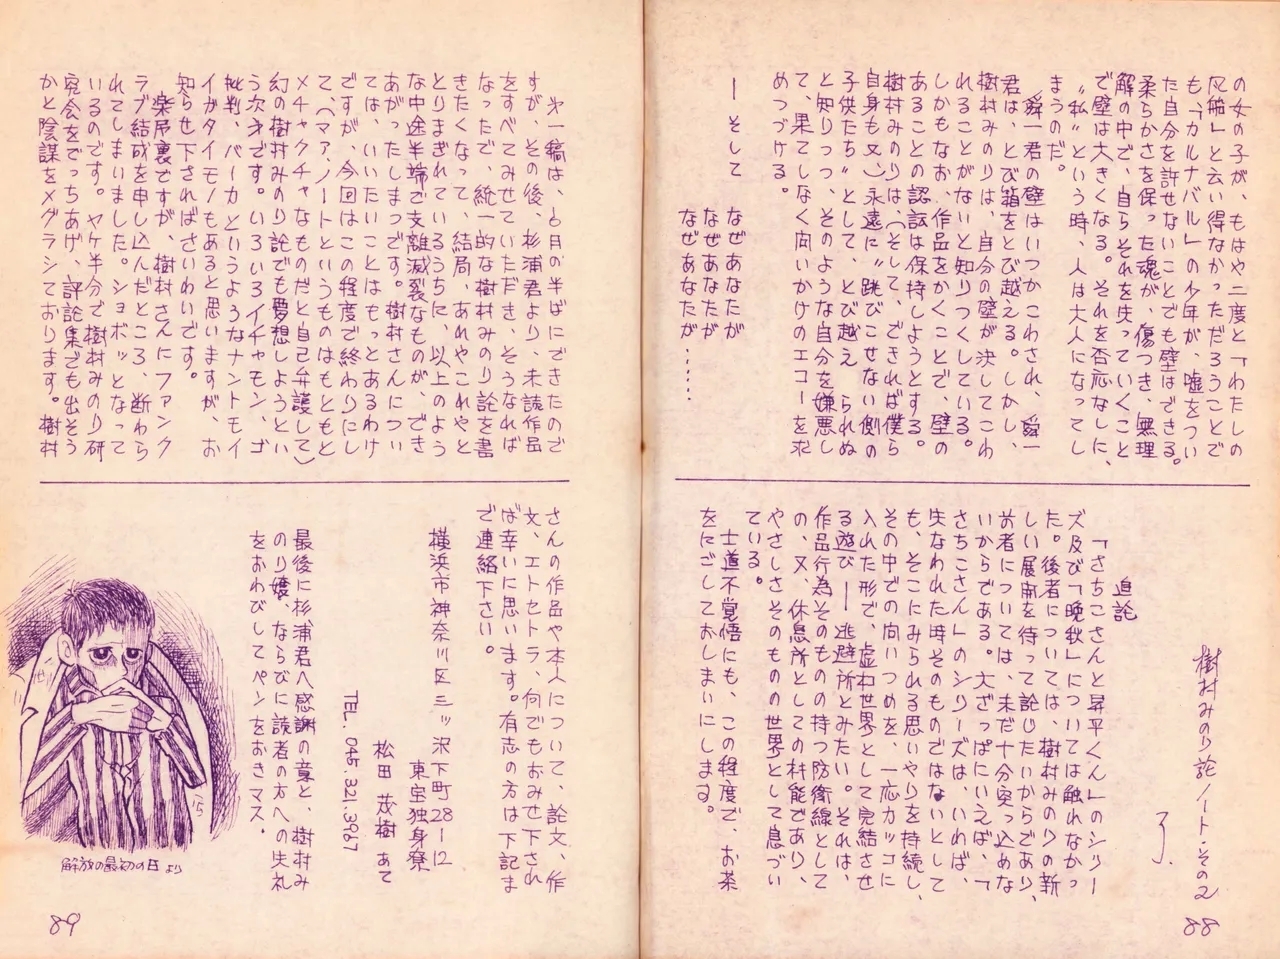 の女の子が、もはや二度と「わたしの
尻船」と云い得なかっただろうことで
も、「カルナバル」の少年が、嘘をつい
た自分を許せないことでも壁はできる。
柔らかさを保った魂が、傷つき、無理
解の中で、自らそれを失っていくこと
で壁は大きくなる。それを否応なしに、
〝私〟という時、人は大人になってし
まうのだ。
舜一君の壁はいつかこわされ、舜一
君は、とび箱をとび越える。しかし、
樹村みのりは、自分の壁が決してこわ
れることがないと知りつくしている。
しかもなお、作品をかくことで、壁の
あることの認識は保持しようとする。
樹村みのりは(そして、できれば僕ら
自身も又)永遠に〝跳びこせない側の
子供たち〟として、とび越え られぬ
と知りつつ、そのような自分を嫌悪し
て、果てしなく向いかけのエコーを求
めつづける。
ー そして
なぜあなたが
なぜあなたが
なぜあなたが……
樹村みのり論ノート・その2
了.
追記
「さちこさんと昇平くん」のシリー
ズ及び「晩秋」については触れなかっ
た。後者については、樹村みのりの新
しい展開を待って論じたいからであり、
前者については、未だ十分突っ込めな
いからである。大ざっぱにいえば、「
さちこさん」のシリーズは、いわば、
失なわれた時そのものではないとして
も、そこにみられる思いやりを持続し、
その中での向いつめを、一応カッコに
入れた形で、虚構世界として完結させ
る遊び ー 逃避所とみたい。それは、
作品行為そのものの持つ防衛線として
の、又、休息所としての機能であり、
やさしさそのものの世界として息づい
ている。
士道不覚悟にも、この程度で、お茶
をにごしておしまいにします。
88
第一稿は、6月の半ばにできたので
すが、その後、杉浦君より、未読作品
をすべてみせていただき、そうなれば
なったで、統一的な樹村みのり論を書
きたくなって、結局、あれやこれやと
とりまぎれているうちに、以上のよう
な中途半端で支離滅裂なものが、でき
あがったしまつです。樹村さんについ
ては、いいたいことはもっとあるわけ
ですが、今回はこの程度で終わりにし
て、(マア、ノートというものはもともと
メチャクチャなものだと自己弁護して)
幻の樹村みのり論でも夢想しようとい
う次第です。いろいろイチャモン、ゴ
批判、バーカというようなナントモイ
イガタイモノもあると思いますが、お
知らせ下さればさいわいです。
楽屋裏ですが、樹村さんにファンク
ラブ結成を申し込んだところ、断わら
れてしまいました。ショボッとなって
いるのです。ヤケ半分で樹村みのり研
究会をでっちあげ、評論集でも出そう
かと陰謀をメグラシております。樹村
さんの作品や本人について、論文、作
文、エトセトラ、何でもおみせ下され
ば幸いに思います。有志の方は下記ま
で連絡下さい。
横浜市神奈川区三ッ沢下町28-12
東宝独身寮
松田 茂樹 あて
TEL. 045.321.3967
最後に杉浦君へ感謝の意と、樹村み
のり嬢、ならびに読者の方への失礼
をおわびしてペンをおきマス.
解放の最初の日 より
89